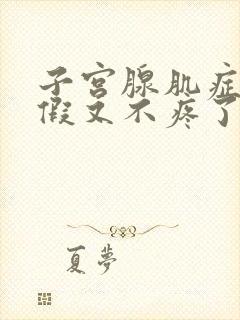 子宫腺肌症
假又不疼了
夏梦